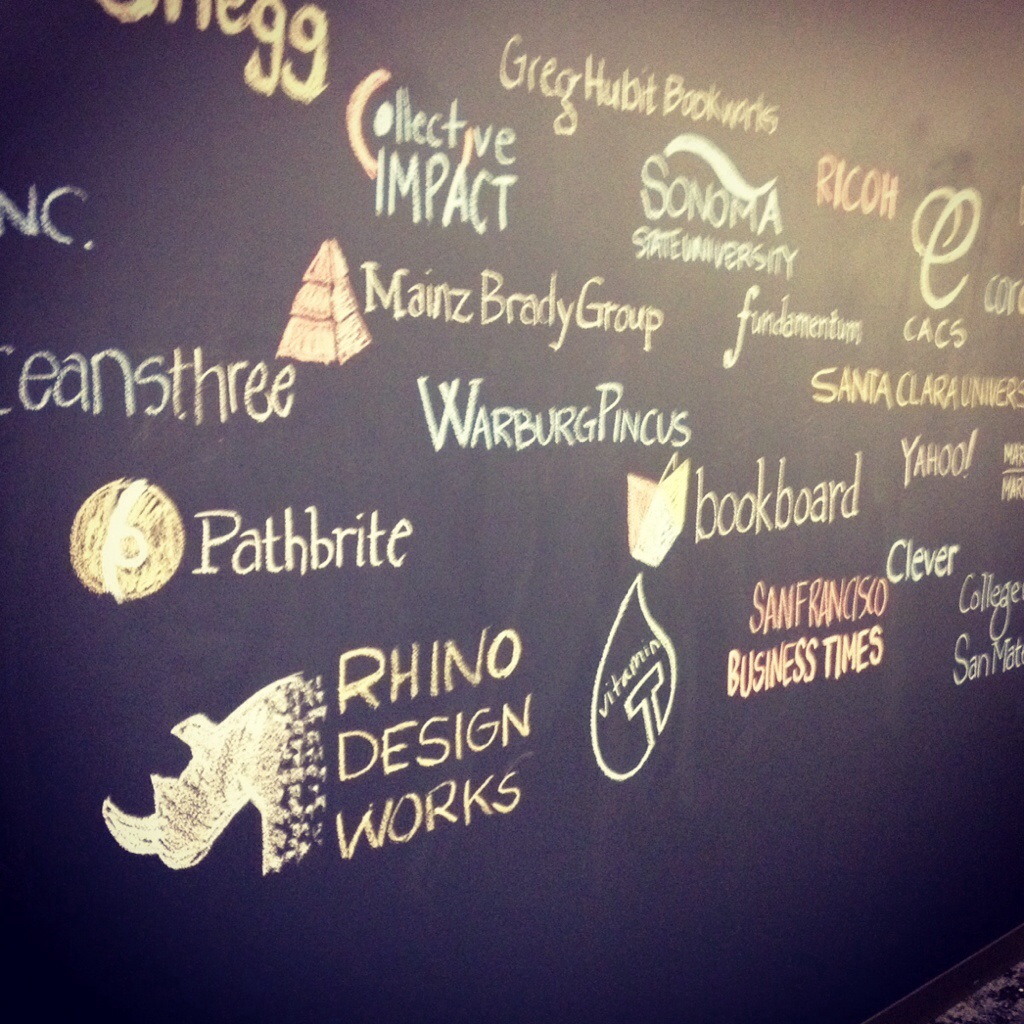 Greg Hubit Bookworks
Collective
IMPACT
SONOMA
STATE UNIVERSITY
RICOH
e
CACS
NC.
Mainz Brady Group
fundamentum
eansthree
SANTA CLARA UNIVERS
WARBURG PINCUS
YAHOO!
bookboard
Pathbrite
Clever
SAN FRANCISCO
BUSINESS TIMES
College
San Mate
vitamin
T
RHINO
DESIGN
WORKS